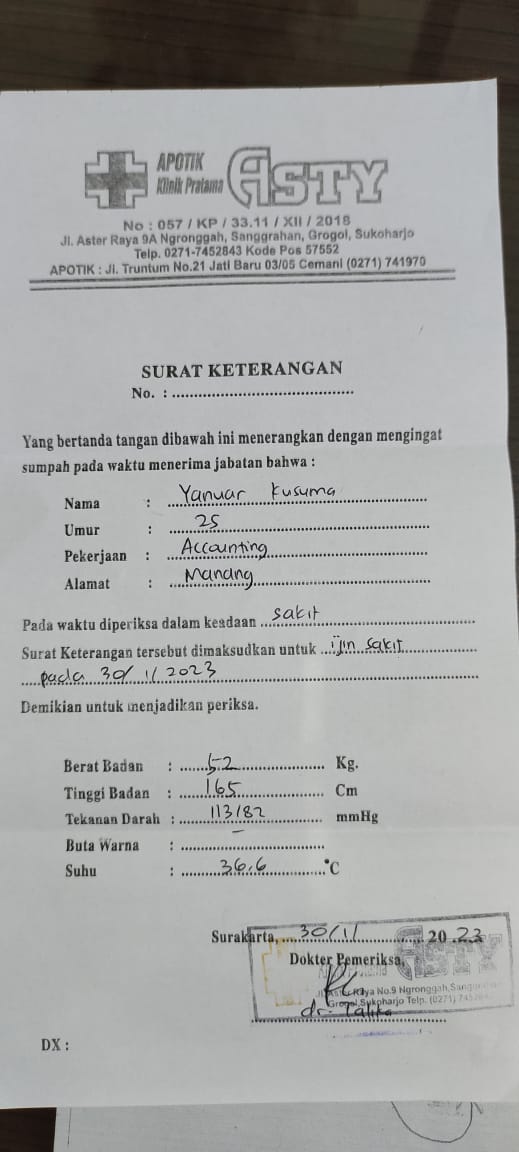 APOTIK
Klinik Pratama ASTY
No : 057 / KP / 33.11 / XII / 2018
Jl. Aster Raya 9A Ngronggah, Sanggrahan, Grogol, Sukoharjo
Telp. 0271-7452843 Kode Pos 57552
APOTIK : Jl. Truntum No.21 Jati Baru 03/05 Cemani (0271) 741970
SURAT KETERANGAN
No. : ..........
Yang bertanda tangan dibawah ini menerangkan dengan mengingat
sumpah pada waktu menerima jabatan bahwa :
Nama : Yanuar Kusuma
Umur : 25
Pekerjaan : Accounting
Alamat : Manang
Pada waktu diperiksa dalam keadaan sakit
Surat Keterangan tersebut dimaksudkan untuk ijin sakit
pada 30/11 2023
Demikian untuk menjadikan periksa.
Berat Badan : 52 Kg.
Tinggi Badan : 165 Cm
Tekanan Darah : 113/82 mmHg
Buta Warna : –
Suhu : 36.6 °C
Surakarta, 30/11 2023
Dokter Pemeriksa,
ASTY
Raya No.9 Ngronggah,
Grogol Sukoharjo Telp. (0271)
dr.
DX :